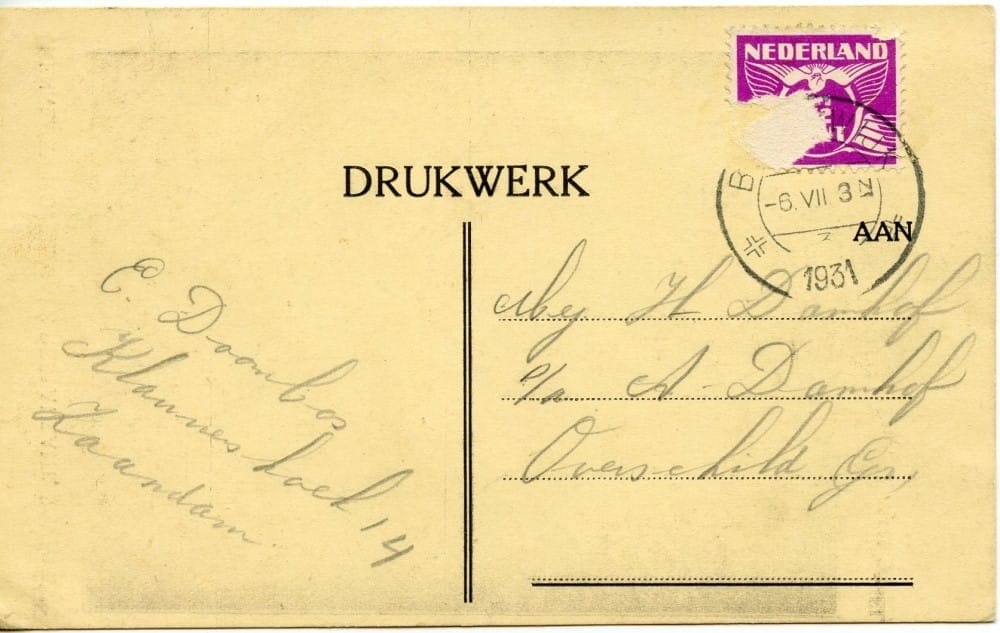 NEDERLAND
DRUKWERK
-6.VII.3
1931
AAN
Mej H. Damhof
p/a. A. Damhof
Overschild Gr,
E. Doornbos
Klauwershoek 14
Zaandam